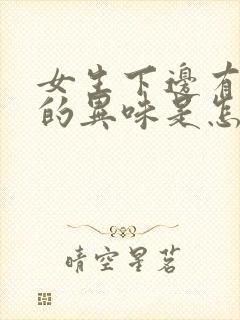 女生下邊有
的異味是怎
晴空星茗